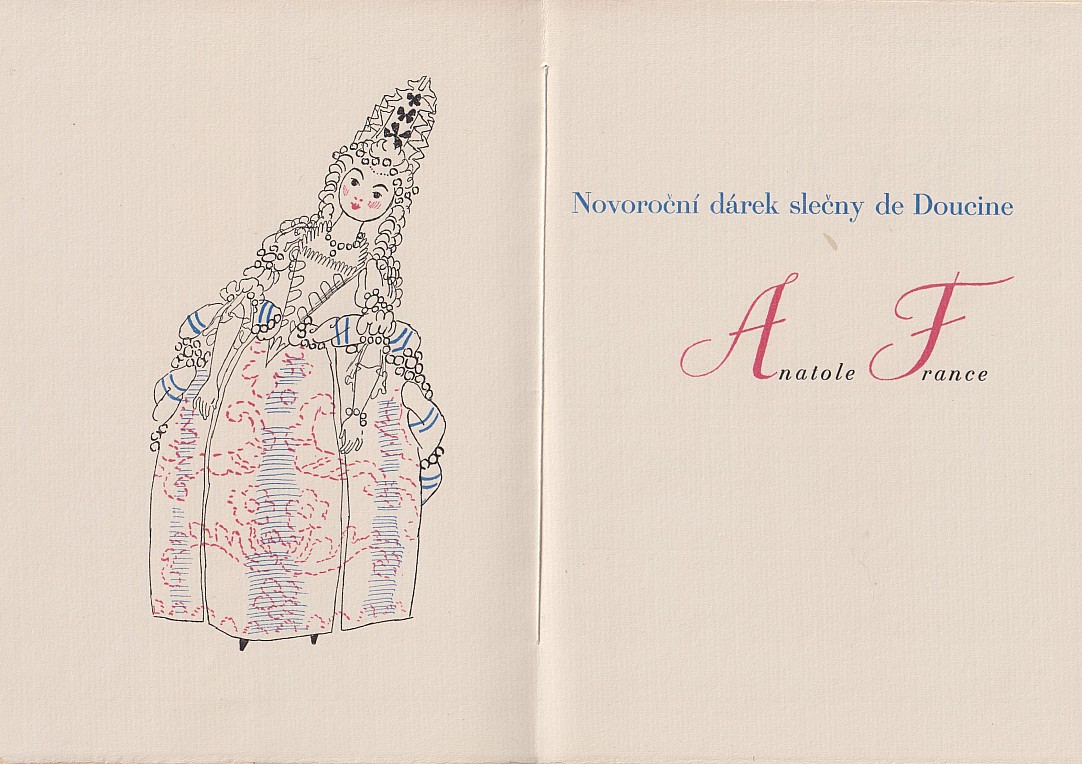 Novoroční dárek slečny de Doucine
Anatole France